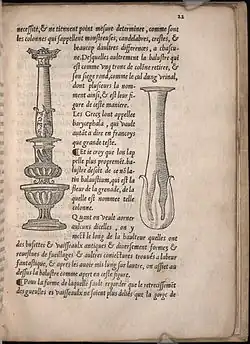 22
necessité, & ne tiennent point mesure determinee, comme sont
les colonnes qui s'appellent monstrueuses, candelabres, crestes, &
beaucop daultres differences, a chascu-
ne. Desquelles aultrement la balustre qui
est comme vng tronc de colōne retiree, &
son siege rond, comme le cul dung vrinal,
dont plusieurs la nom-
ment ainsi, & est leur fi-
gure de ceste maniere.
Les Grecz lont appellee
barycephala, qui vault
autāt a dire en francoys
que grande teste.
Et ie croy que lon lap
pelle plus proprement ba-
lustre de
latin balaustium, qui est la
fleur de la grenade, de la
quelle est nommee telle
colonne.
Quant on veult aorner
aulcuns dicelles, on y
mect le long de la haulteur quelles ont
des busettes & vaisseaulx antiques & diversement formez &
revestuz de fueillages & aultres coniectures trouues a labeur
fantastique, & apres les avoir mis lung sur lautre, on assiet au
dessus la balustre comme apert en ceste figure.
Pour la forme de laquelle fault regarder que le retrecissemēt
des gueulles es vaisseaulx ne soient plus delies que la gorge de